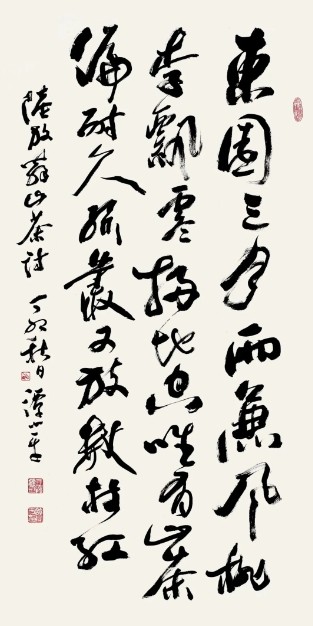 東園三月雨兼風桃
李飄零掃地空唯有山茶
偏耐久緑叢又放數枝紅
陸放翁山茶詩 丁卯秋日 譚